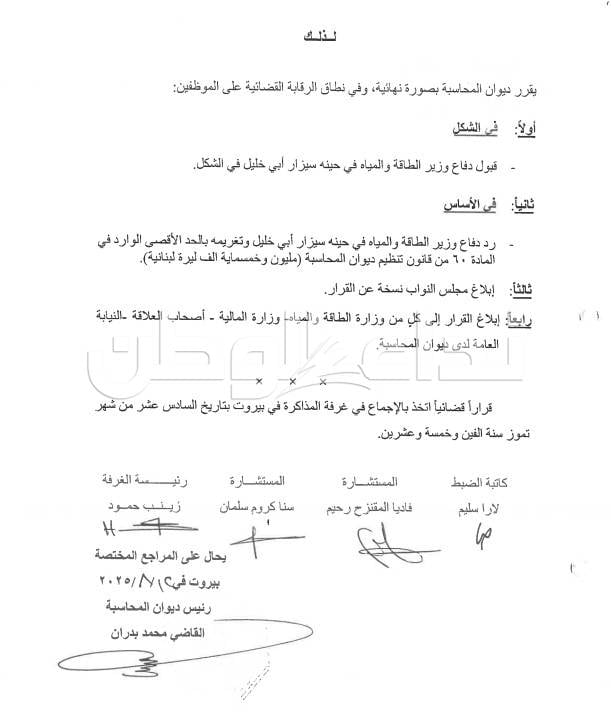 لـذلـك
يقرر ديوان المحاسبة بصورة نهائية، وفي نطاق الرقابة القضائية على الموظفين:
أولاً: في الشكل
- قبول دفاع وزير الطاقة والمياه في حينه سيزار أبي خليل في الشكل.
ثانياً: في الأساس
- رد دفاع وزير الطاقة والمياه في حينه سيزار أبي خليل وتغريمه بالحد الأقصى الوارد في
المادة ٦٠ من قانون تنظيم ديوان المحاسبة (مليون وخمسماية الف ليرة لبنانية).
ثالثاً: إبلاغ مجلس النواب نسخة عن القرار.
رابعاً: إبلاغ القرار إلى كل من وزارة الطاقة والمياه- وزارة المالية - أصحاب العلاقة -النيابة
العامة لدى ديوان المحاسبة.
نداء الوطن
× × ×
قراراً قضائياً اتخذ بالإجماع في غرفة المذاكرة في بيروت بتاريخ السادس عشر من شهر
تموز سنة الفين وخمسة وعشرين.
كاتبة الضبط المستشـــارة المستشـــارة رئيـــسة الغرفة
لارا سليم فاديا المقنزح رحيم سنا كروم سلمان زينـب حمود
يحال على المراجع المختصة
بيروت في ٢٠٢٥/
رئيس ديوان المحاسبة
القاضي محمد بدران